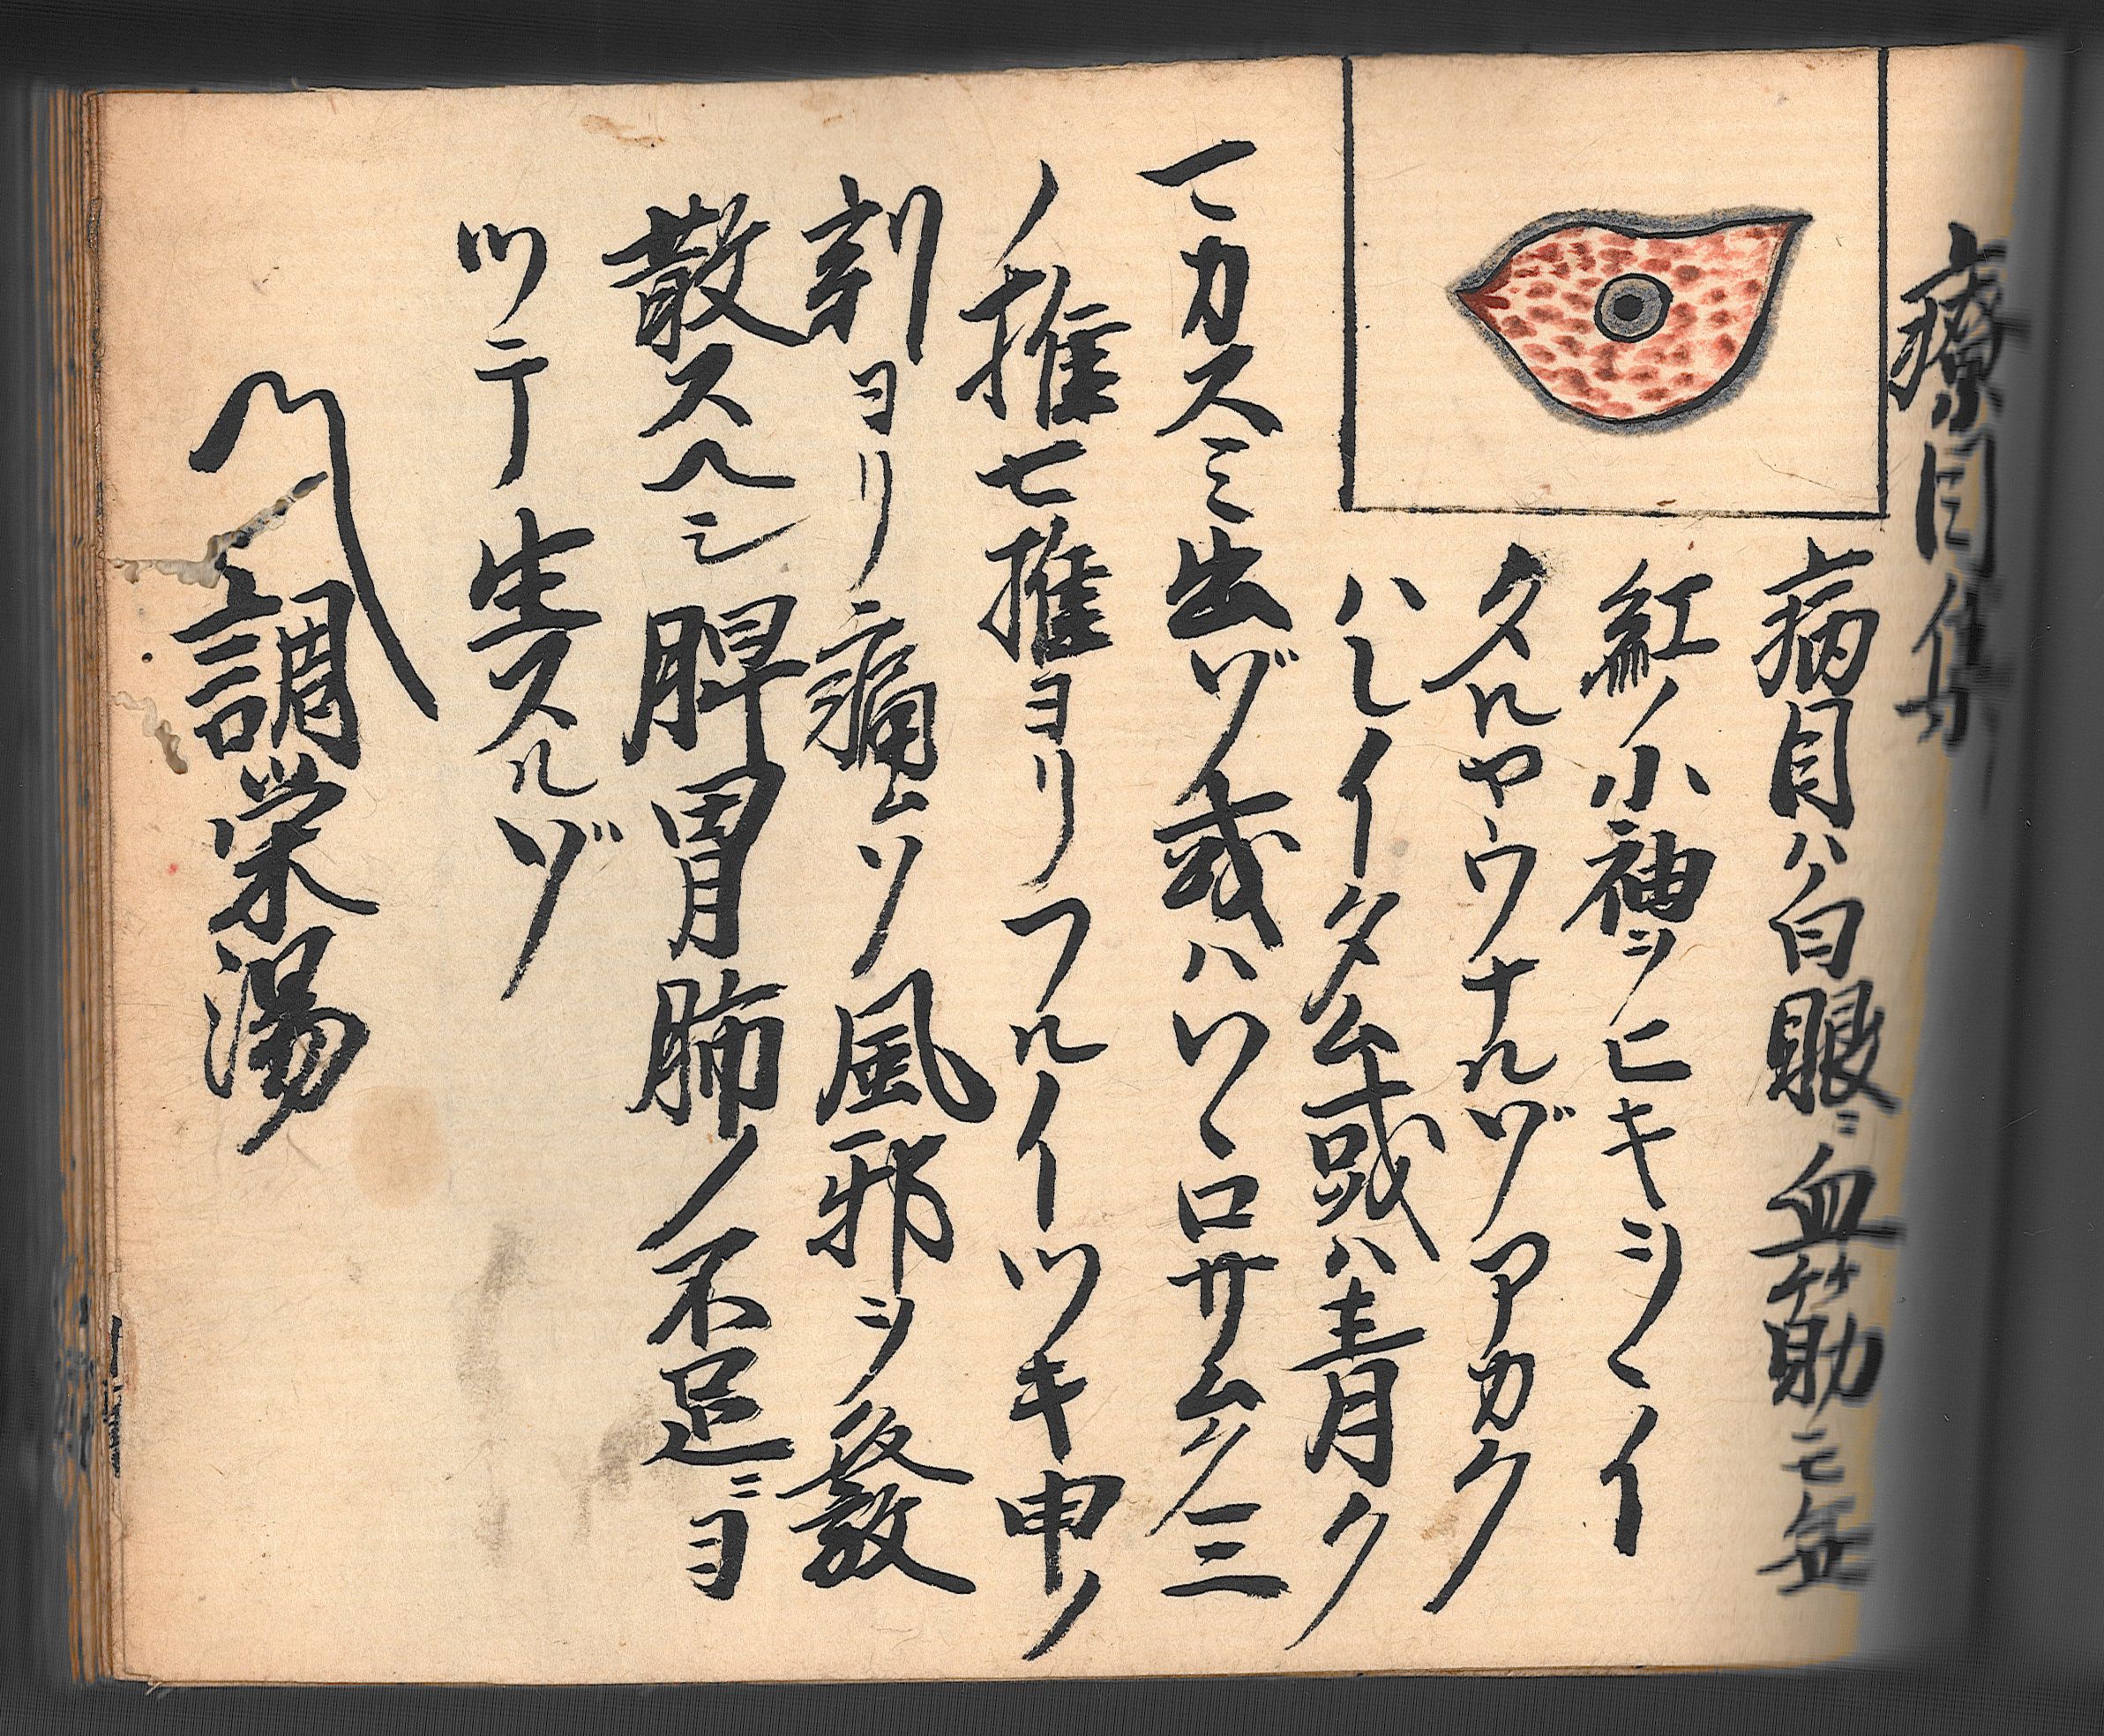 病目ハ白眼ニ血筋モ無
紅ノ小袖ヲヒキシヽイ
タルヤウナルゾアカク
ハレイタム或ハ青ク
マカスミ出ヅ或ハソヽロサムク三
ノ推七推ヨリフルイツキ申ノ
刻ヨリ痛ムソ風邪ヲ發
散スヘシ脾胃肺ノ不足ニヨ
ツテ生スルゾ
〽調栄湯